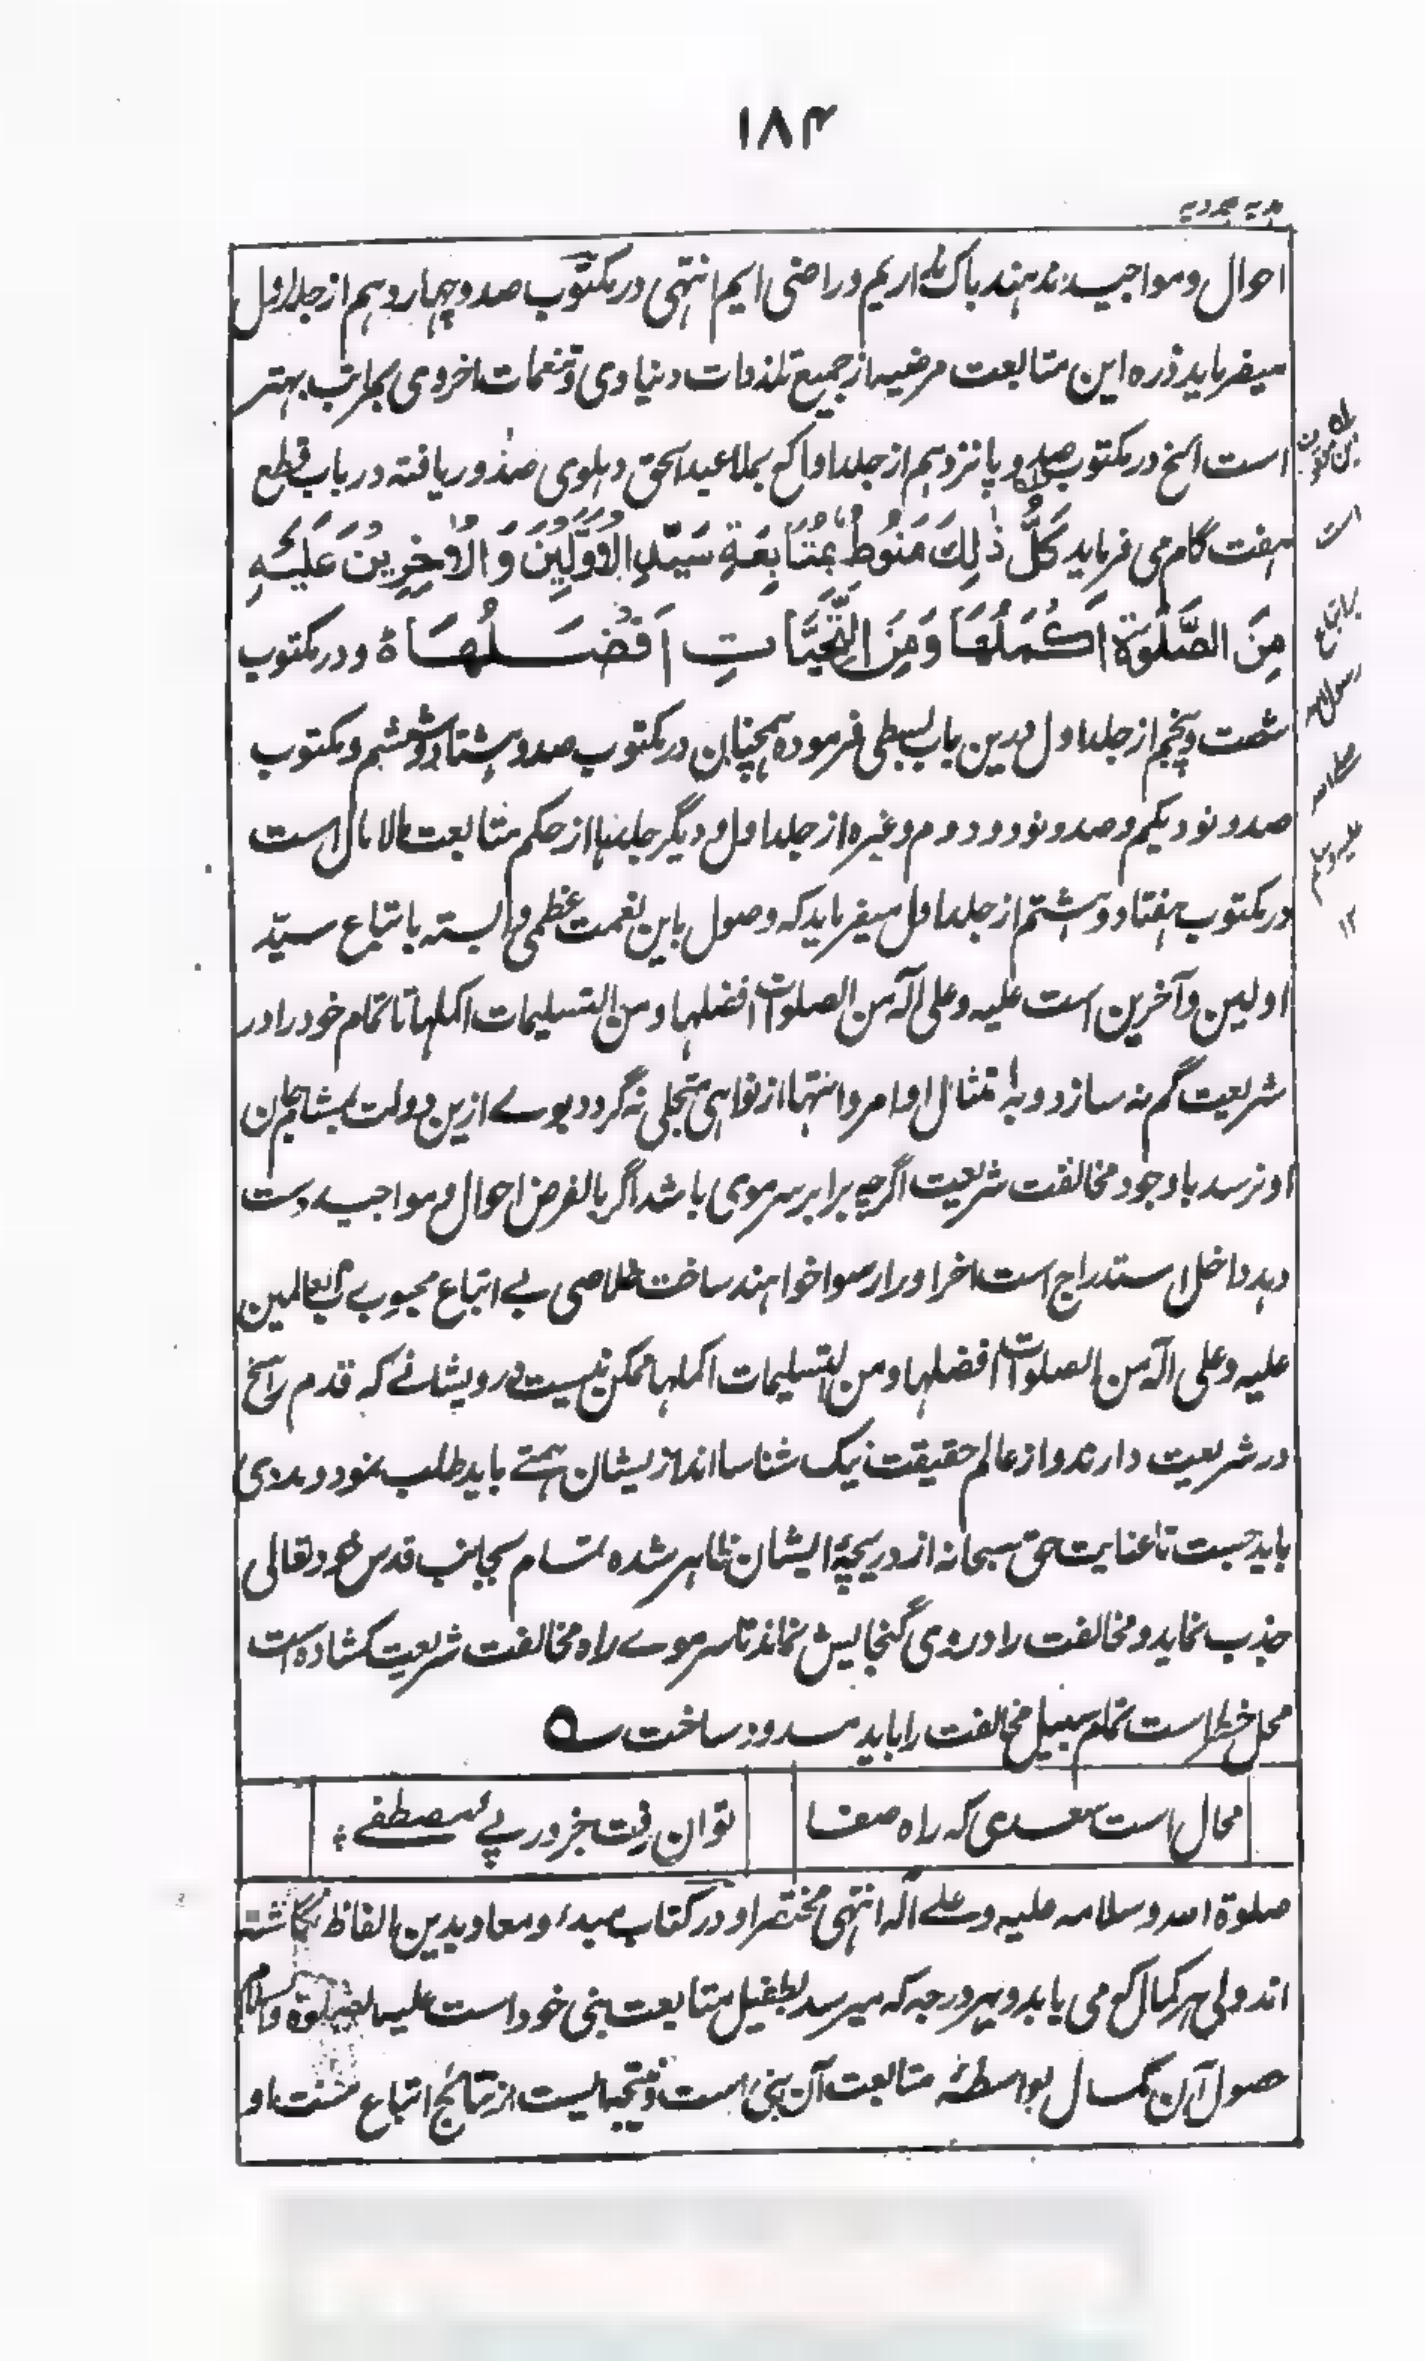 ۱۸۴
ہدیہ مجددیہ
احوال و مواجید ندہند باک نداریم و راضی ایم انتہی در مکتوب صد و چہاردہم از جلد اول
میفرماید ذرہ این متابعت مرضیہ از جمیع تلذذات دنیاوی و تنعمات اخروی بمراتب بہتر
است الخ در مکتوب صد و پانزدہم از جلد اول کہ بملا عبد الحق دہلوی صدور یافتہ در باب قطع
ہفت گام می فرماید کُلُّ ذٰلِكَ مَنُوْطٌ بِمُتَابَعَةِ سَيِّدِ الْاَوَّلِيْنَ وَ الْاٰخِرِيْنَ عَلَيْهِ
مِنَ الصَّلٰوةِ اَكْمَلُهَا وَمِنَ التَّحِيَّاتِ اَفْضَلُهَا ۃ و در مکتوب
شصت و پنجم از جلد اول درین باب بسطی فرمودہ ہمچنان در مکتوب صد و ہشتاد و ششم و مکتوب
صد و نود یکم و صد و نود و دوم و غیرہ از جلد اول و دیگر جلدہا از حکم متابعت مالامال است
در مکتوب ہفتاد و ہشتم از جلد اول میفرماید کہ وصول باین نعمت عظمی وابستہ باتباع سیّد
اولین و آخرین است علیہ و علی آلہ من الصلوات افضلہا و من التسلیمات اکملہا تا تمام خود را در
شریعت گم نہ سازد و بہ امتثال اوامر و انتہا از نواہی متجلی نہ گردد بوے ازین دولت بمشام جان
او نرسد باوجود مخالفت شریعت اگرچہ برابر سر موی باشد اگر بالفرض احوال و مواجید دست
دہد داخل استدراج است اخر او را رسوا خواہند ساخت خلاصی بے اتباع محبوب رب العالمین
علیہ و علی آلہ من الصلوات افضلہا و من التسلیمات اکملہا ممکن نیست درویشانے کہ قدم راسخ
در شریعت دارند و از عالم حقیقت نیک شناسا اند از یشان ہمتے باید طلب نمود و مددی
باید جست تا عنایت حق سبحانہ از دریچۂ ایشان ظاہر شدہ تمام بجانب قدس خود تعالی
جذب نماید و مخالفت را در وی گنجایش نماند تا سر موے راہ مخالفت شریعت کشادہ است
محل خطر است تمام سبیل مخالفت را باید مسدود ساخت ؎
محال است سعدی کہ راہ صفا
توان رفت جز در پے مصطفے ؞
صلوۃ اللہ و سلامہ علیہ و علے آلہ انتہی مختصرا و در کتاب مبدء و معاد بدین الفاظ نگاشتہ
اند ولی ہر کمال کہ می یابد و بہر درجہ کہ میرسد بطفیل متابعت نبی خود است علیہ الصلوۃ والسلام
حصول آن کمال بواسطۂ متابعت آن نبی است و نتیجہ ایست از نتائج اتباع سنت او
این مکتوب
است
برا تباع
رسول اللہ
صلے اللہ
علیہ وسلم
۱۲